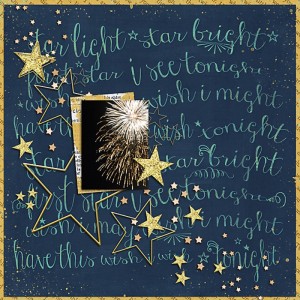 star light star bright
first star i see tonight
wish i might
have this wish tonight
star light star bright
first star i see tonight
wish i may wish i might
have this wish i wish tonight